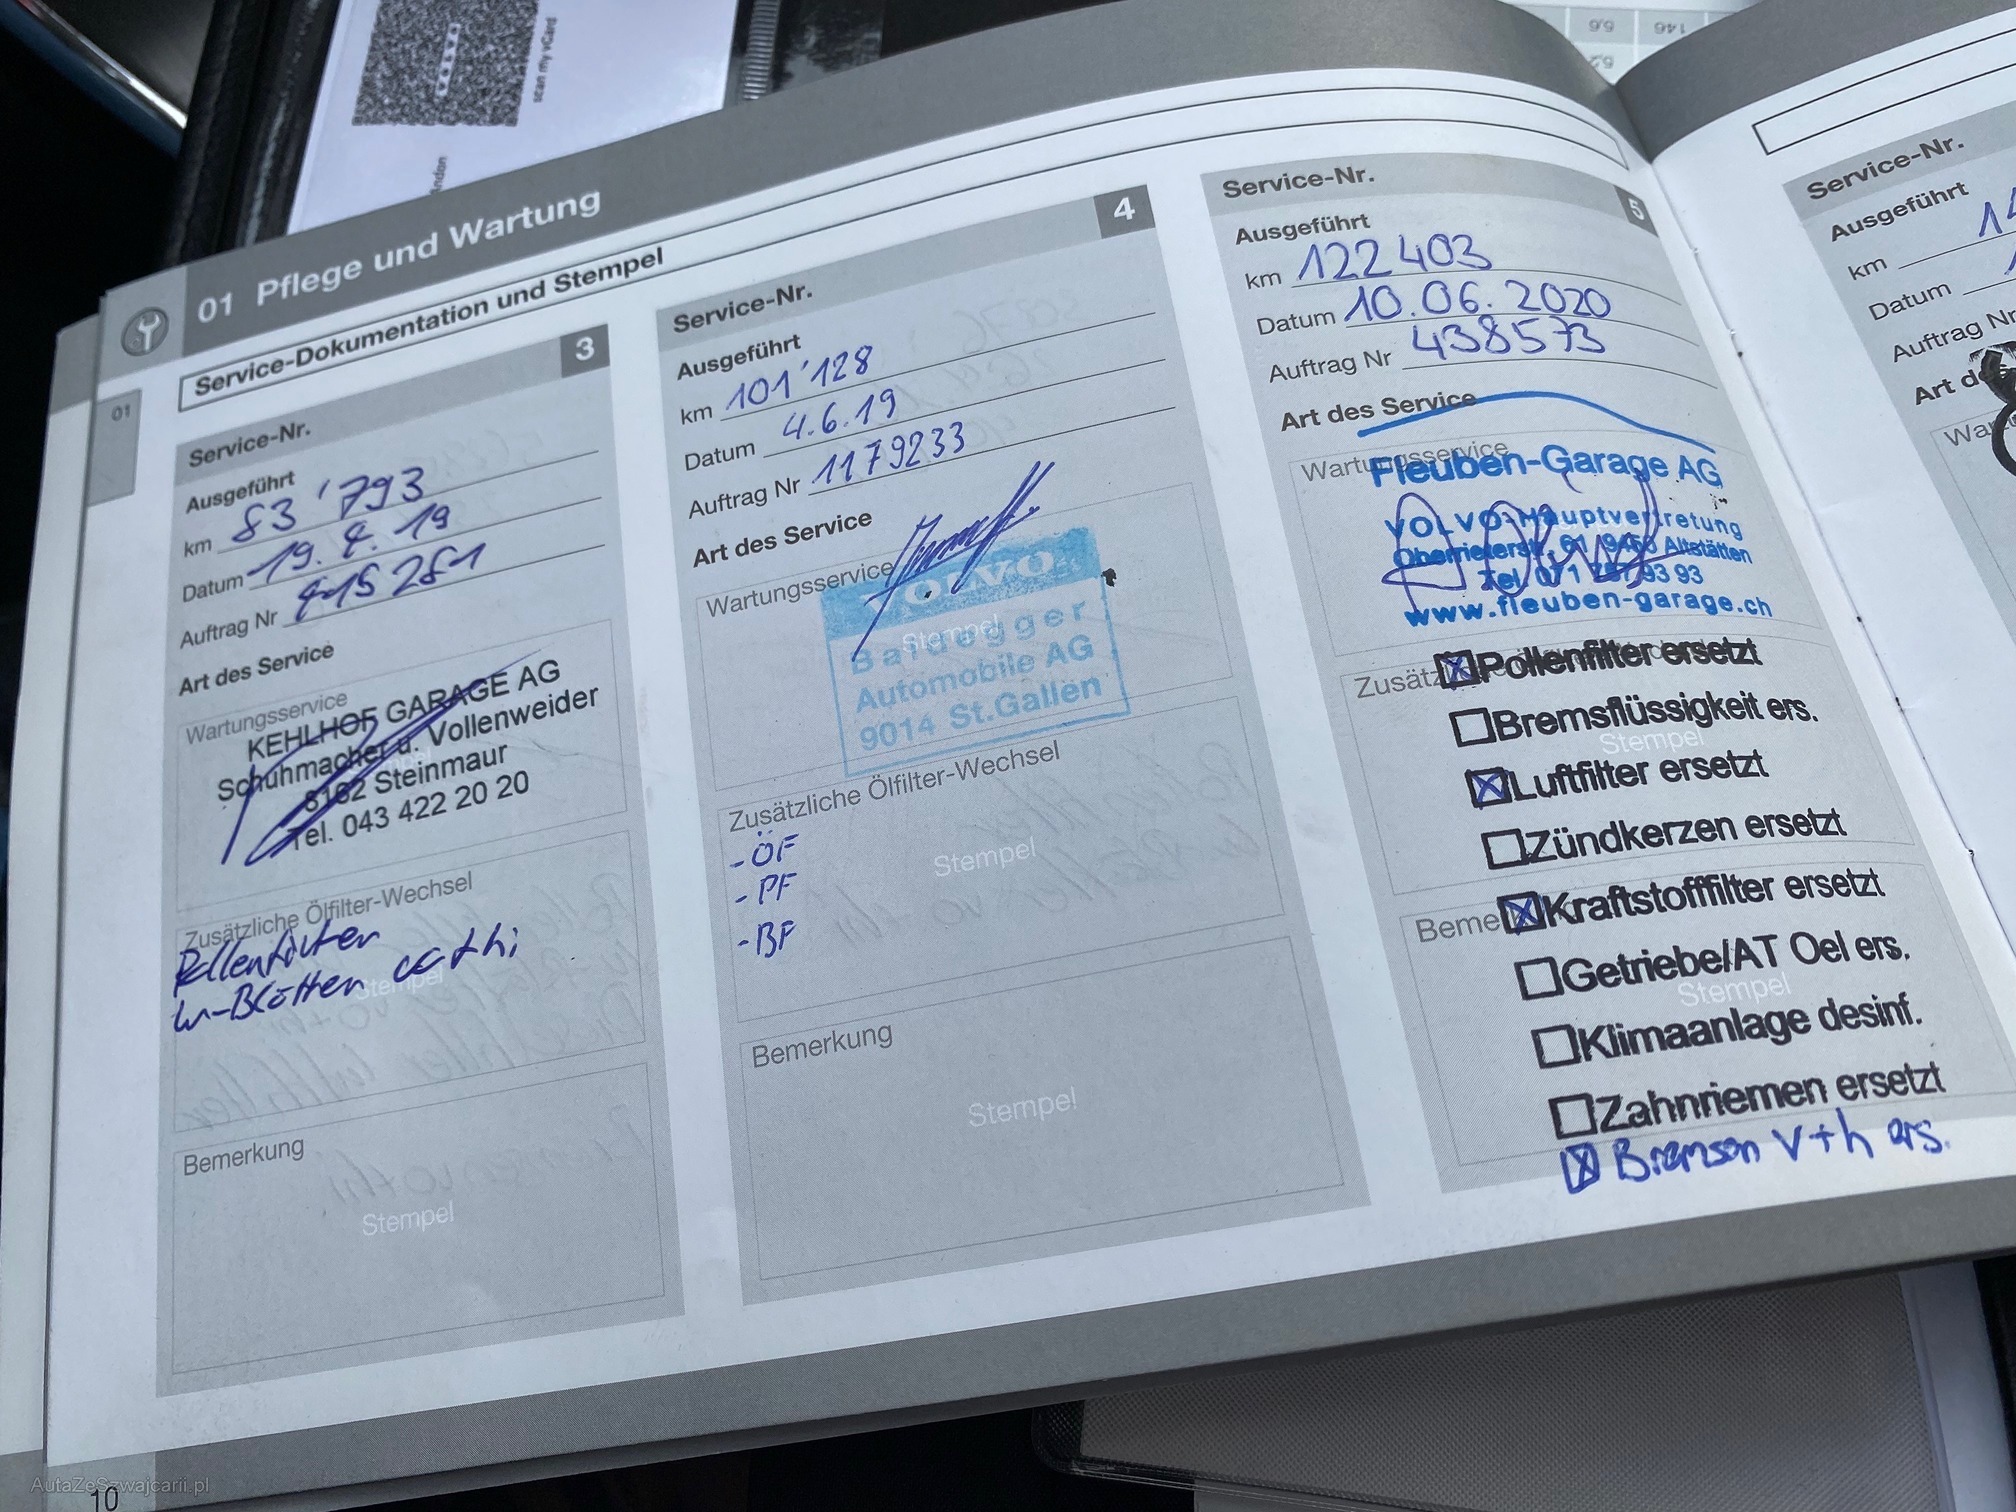 VOLVO
scan my vCard
146
5,6
01 Pflege und Wartung
Service-Dokumentation und Stempel
01
Service-Nr. 3
Ausgeführt
km 83'793
Datum 19. 19
Auftrag Nr
Art des Service
Wartungsservice
KEHLHOF GARAGE AG
Schuhmacher u. Vollenweider
8162 Steinmaur
Tel. 043 422 20 20
Zusätzliche Ölfilter-Wechsel
Stempel
Bemerkung
Stempel
Service-Nr. 4
Ausgeführt
km 101'128
Datum 4.6.19
Auftrag Nr 1179233
Art des Service
Wartungsservice
VOLVO
Stempel
Baldegger
Automobile AG
9014 St.Gallen
Zusätzliche Ölfilter-Wechsel
-ÖF
-PF
-BF
Stempel
Bemerkung
Stempel
Service-Nr. 5
Ausgeführt
km 122403
Datum 10.06.2020
Auftrag Nr 438573
Art des Service
Wartungsservice
Fleuben-Garage AG
VOLVO-Hauptvertretung
Oberrieterstr. 61 9450 Altstätten
www.fleuben-garage.ch
Pollenfilter ersetzt
Bremsflüssigkeit ers.
Stempel
Luftfilter ersetzt
Zündkerzen ersetzt
Kraftstofffilter ersetzt
Getriebe/AT Oel ers.
Stempel
Klimaanlage desinf.
Zahnriemen ersetzt
Bremsen v+h ers.
Service-Nr.
Ausgeführt
km
Datum
Auftrag Nr
10
AutaZeSzwajcarii.pl